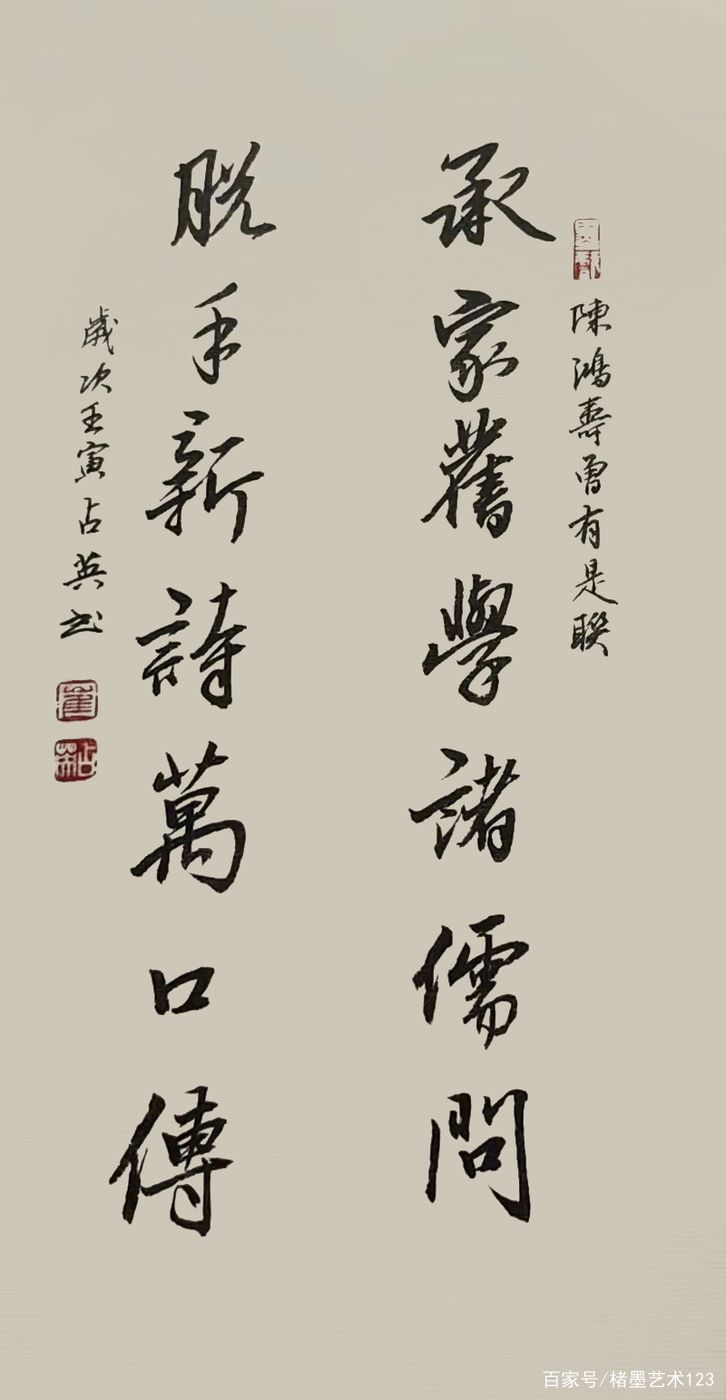 陳鴻壽曾有是聯
承家舊學諸儒問
脱手新詩萬口傳
歲次壬寅占英书
崔
占英
百家号/楮墨艺术123